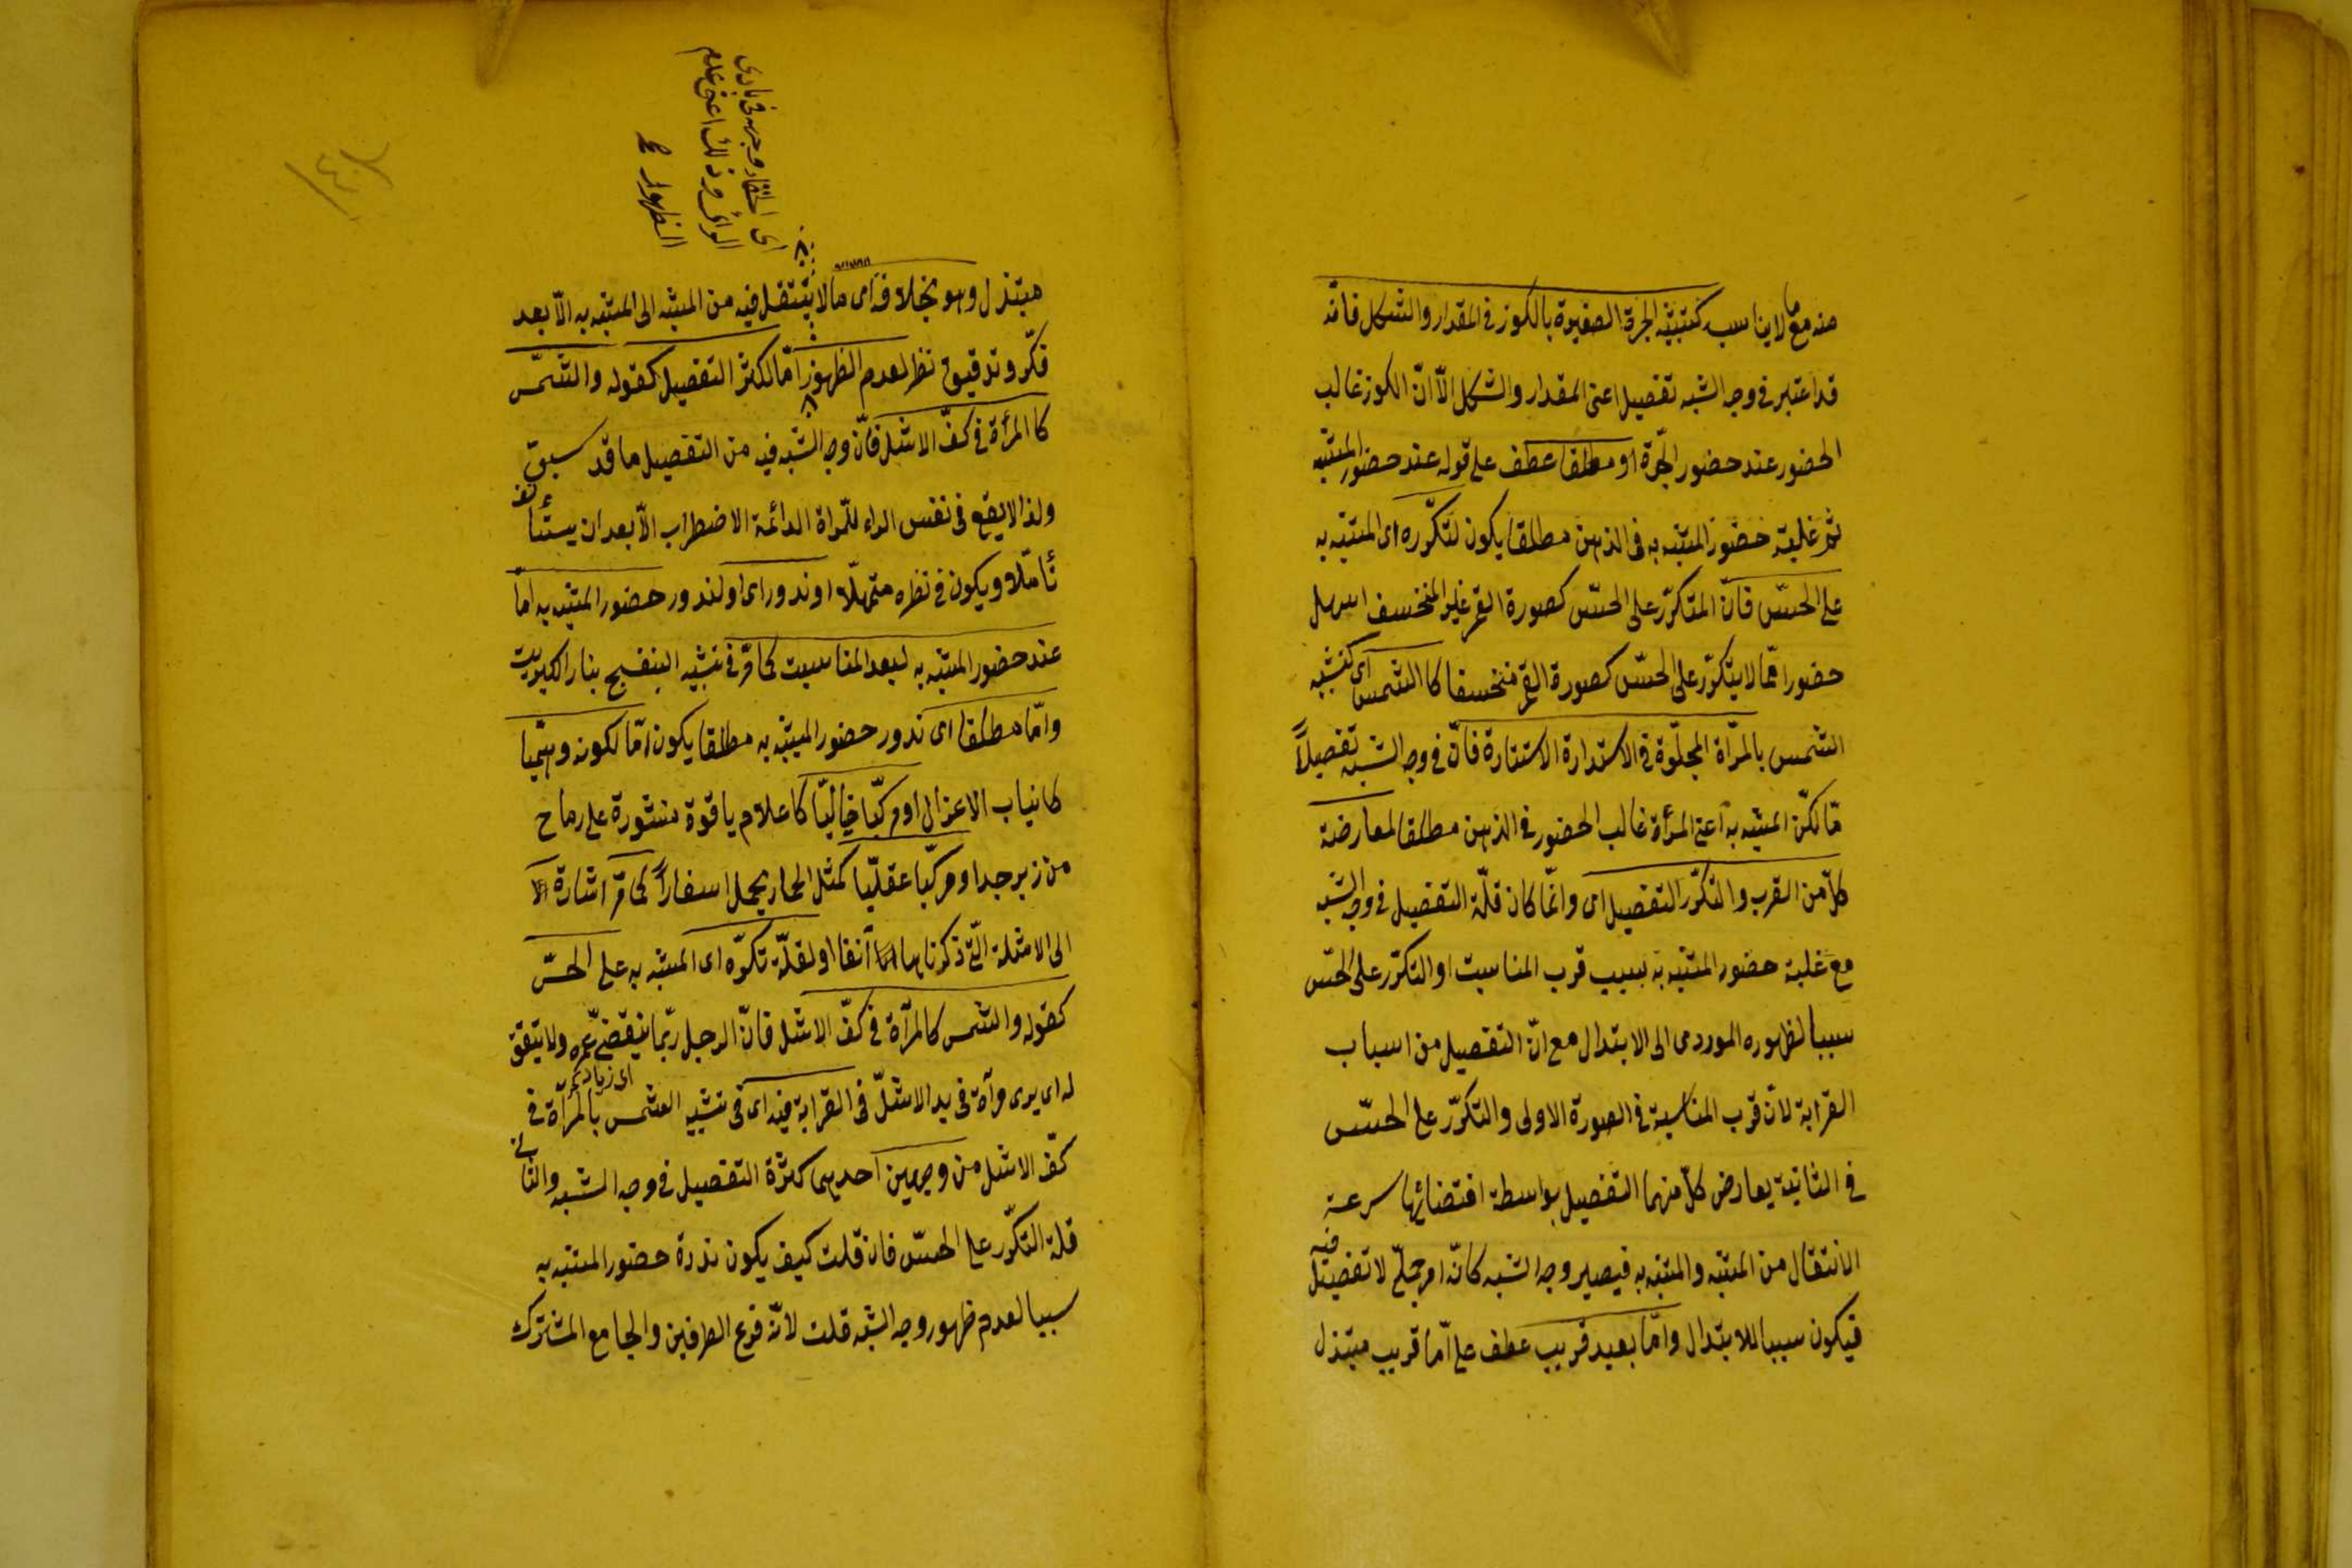 منه مع ما لا يناسب كتشبيه الجرة الصغيرة بالكوز فى المقدار والشكل فانّه
قد اعتبر فى وجه الشبه تفصيل اعنى المقدار والشكل الّا انّ الكوز غالب
الحضور عند حضور الجرّة او مطلقا عطف على قوله عند حضور المشبه
ثم غلبة حضور المشبه به فى الذهن مطلقا يكون لتكرّره اى المشبه به
على الحسّ فانّ المتكرّر على الحسّ كصورة القمر غير المنخسف اسهل
حضورا ممّا لا يتكرّر على الحسّ كصورة القمر منخسفا كالشمس اى كتشبيه
الشمس بالمرآة المجلوّة فى الاستدارة الاستنارة فانّ فى وجه الشبه تفصيلاً
مّا لكنّ المشبه به اعنى المرأة غالب الحضور فى الذهن مطلقا لمعارضة
كلّ من القرب والتكرّر التفصيل اى وانّما كان قلّة التفصيل فى وجه الشبه
مع غلبة حضور المشبه به بسبب قرب المناسبت او التكرّر على الحسّ
سببا لظهوره الموردى الى الابتدال مع انّ التفصيل من اسباب
القرابة لانّ قرب المناسبة فى الصورة الاولى والتكرّر على الحسّ
فى الثانية يعارض كلّ منهما التفصيل بواسطة اقتضائها سرعة
الانتقال من المشبه والمشبه به فيصير وجه الشبه كانّه امر جملّى لا تفصيل فيه
فيكون سببا للابتدال وامّا بعيد قريب عطف على امّا قريب مبتذل
اى الخفاء وجهه فى بادى
الرائ وذلك اعنى عدم
الظهور
مبتذل وهو بخلافه اى ما لا ينتقل فيه من المشبه الى المشبه به الّا بعد
فكّر وتدقيق نظر لعدم الظهور امّا لكثرة التفصيل كقوله والشمس
كالمرأة فى كفّ الاشل فانّ وجه الشبه فيه من التفصيل ما قد سبق
ولذا لا يقع فى نفس الراء للمرآة الدائمة الاضطراب الّا بعد ان يستأنف
تأمّلا ويكون فى نظره متمهّلا او ندور اى او لندور حضور المشبه به امّا
عند حضور المشبه به لبعد المناسبت كما مرّ فى تشبيه البنفسج بنار الكبريت
وامّا مطلقا اى ندور حضور المشبه به مطلقا يكون امّا لكونه وهميّا
كانياب الاغوال او مركّبا خياليّا كاعلام ياقوة منشورة على رماح
من زبرجد او مركّبا عقليّا كمثل الحمار يحمل اسفاراً كما مرّ اشارة
الى الامثلة الّتى ذكرناها آنفا او لقلّة تكرّه اى المشبه به على الحسّ
كقوله والشمس كالمرآة فى كفّ الاشل فانّ الرجل ربّما ينقضى عمره ولا يتفق
له اى يرى مرآة فى يد الاشلّ فى القرابة فيه اى فى تشبيه الشمس بالمرآة فى
كفّ الاشل من وجهين احديهما كثرة التفصيل فى وجه الشبه والثانى
قلة التكرّر على الحسّ فان قلت كيف يكون ندرة حضور المشبه به
سببا لعدم ظهور وجه الشبه قلت لانّه فرع الطرفين والجامع المشترك